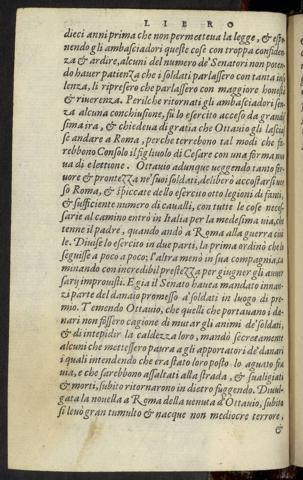 LIBRO
dieci anni prima che non permetteua la legge, & espo-
nendo gli ambasciadori queste cose con troppa confiden-
za & ardire, alcuni del numero de' Senatori non poten-
do hauer patienza che i soldati parlassero con tanta inso
lenza, li ripresero che parlassero con maggiore honestà
& riuerenza. Perilche ritornati gli ambasciadori sen-
za alcuna conchiusione, fù lo esercito acceso da grandis
sima ira, & chiedeua di gratia che Ottauio gli lascias
se andare a Roma, perche terrebono tal modi che fa-
rebbono Consolo il figliuolo di Cesare con una forma nuo
ua di elettione. Ottauio adunque ueggendo tanto fer-
uore & prontezza ne' suoi soldati, deliberò accostarsi uer
so Roma, & spiccate dello esercito otto legioni di fanti,
& sufficiente numero di caualli, con tutte le cose neces-
sarie al camino entrò in Italia per la medesima uia, che
tenne il padre, quando andò a Roma alla guerra ciui
le. Diuise lo esercito in due parti, la prima ordinò che lo
seguisse a poco a poco; l'altra menò in sua compagnia, ca
minando con incredibil prestezza per giugner gli auuer
sary improuisi. E gia il Senato hauea mandato innan-
zi parte del danaio promesso a' soldati in luogo di pre-
mio. Temendo Ottauio, che quelli che portauano i da-
nari non fossero cagione di mutar gli animi de' soldati,
& di intepidir la caldezza loro, mandò secretamente
alcuni che mettessero paura a gli apportatori de' danari
i quali intendendo che era stato loro posto lo aguato fra
uia, e che sarebbono assaltati alla strada, & sualigiati
& morti, subito ritornarono in dietro fuggendo. Diuul-
gata la nouella a Roma della uenuta d'Ottauio, subito
si leuò gran tumulto & nacque non mediocre terrore,
&